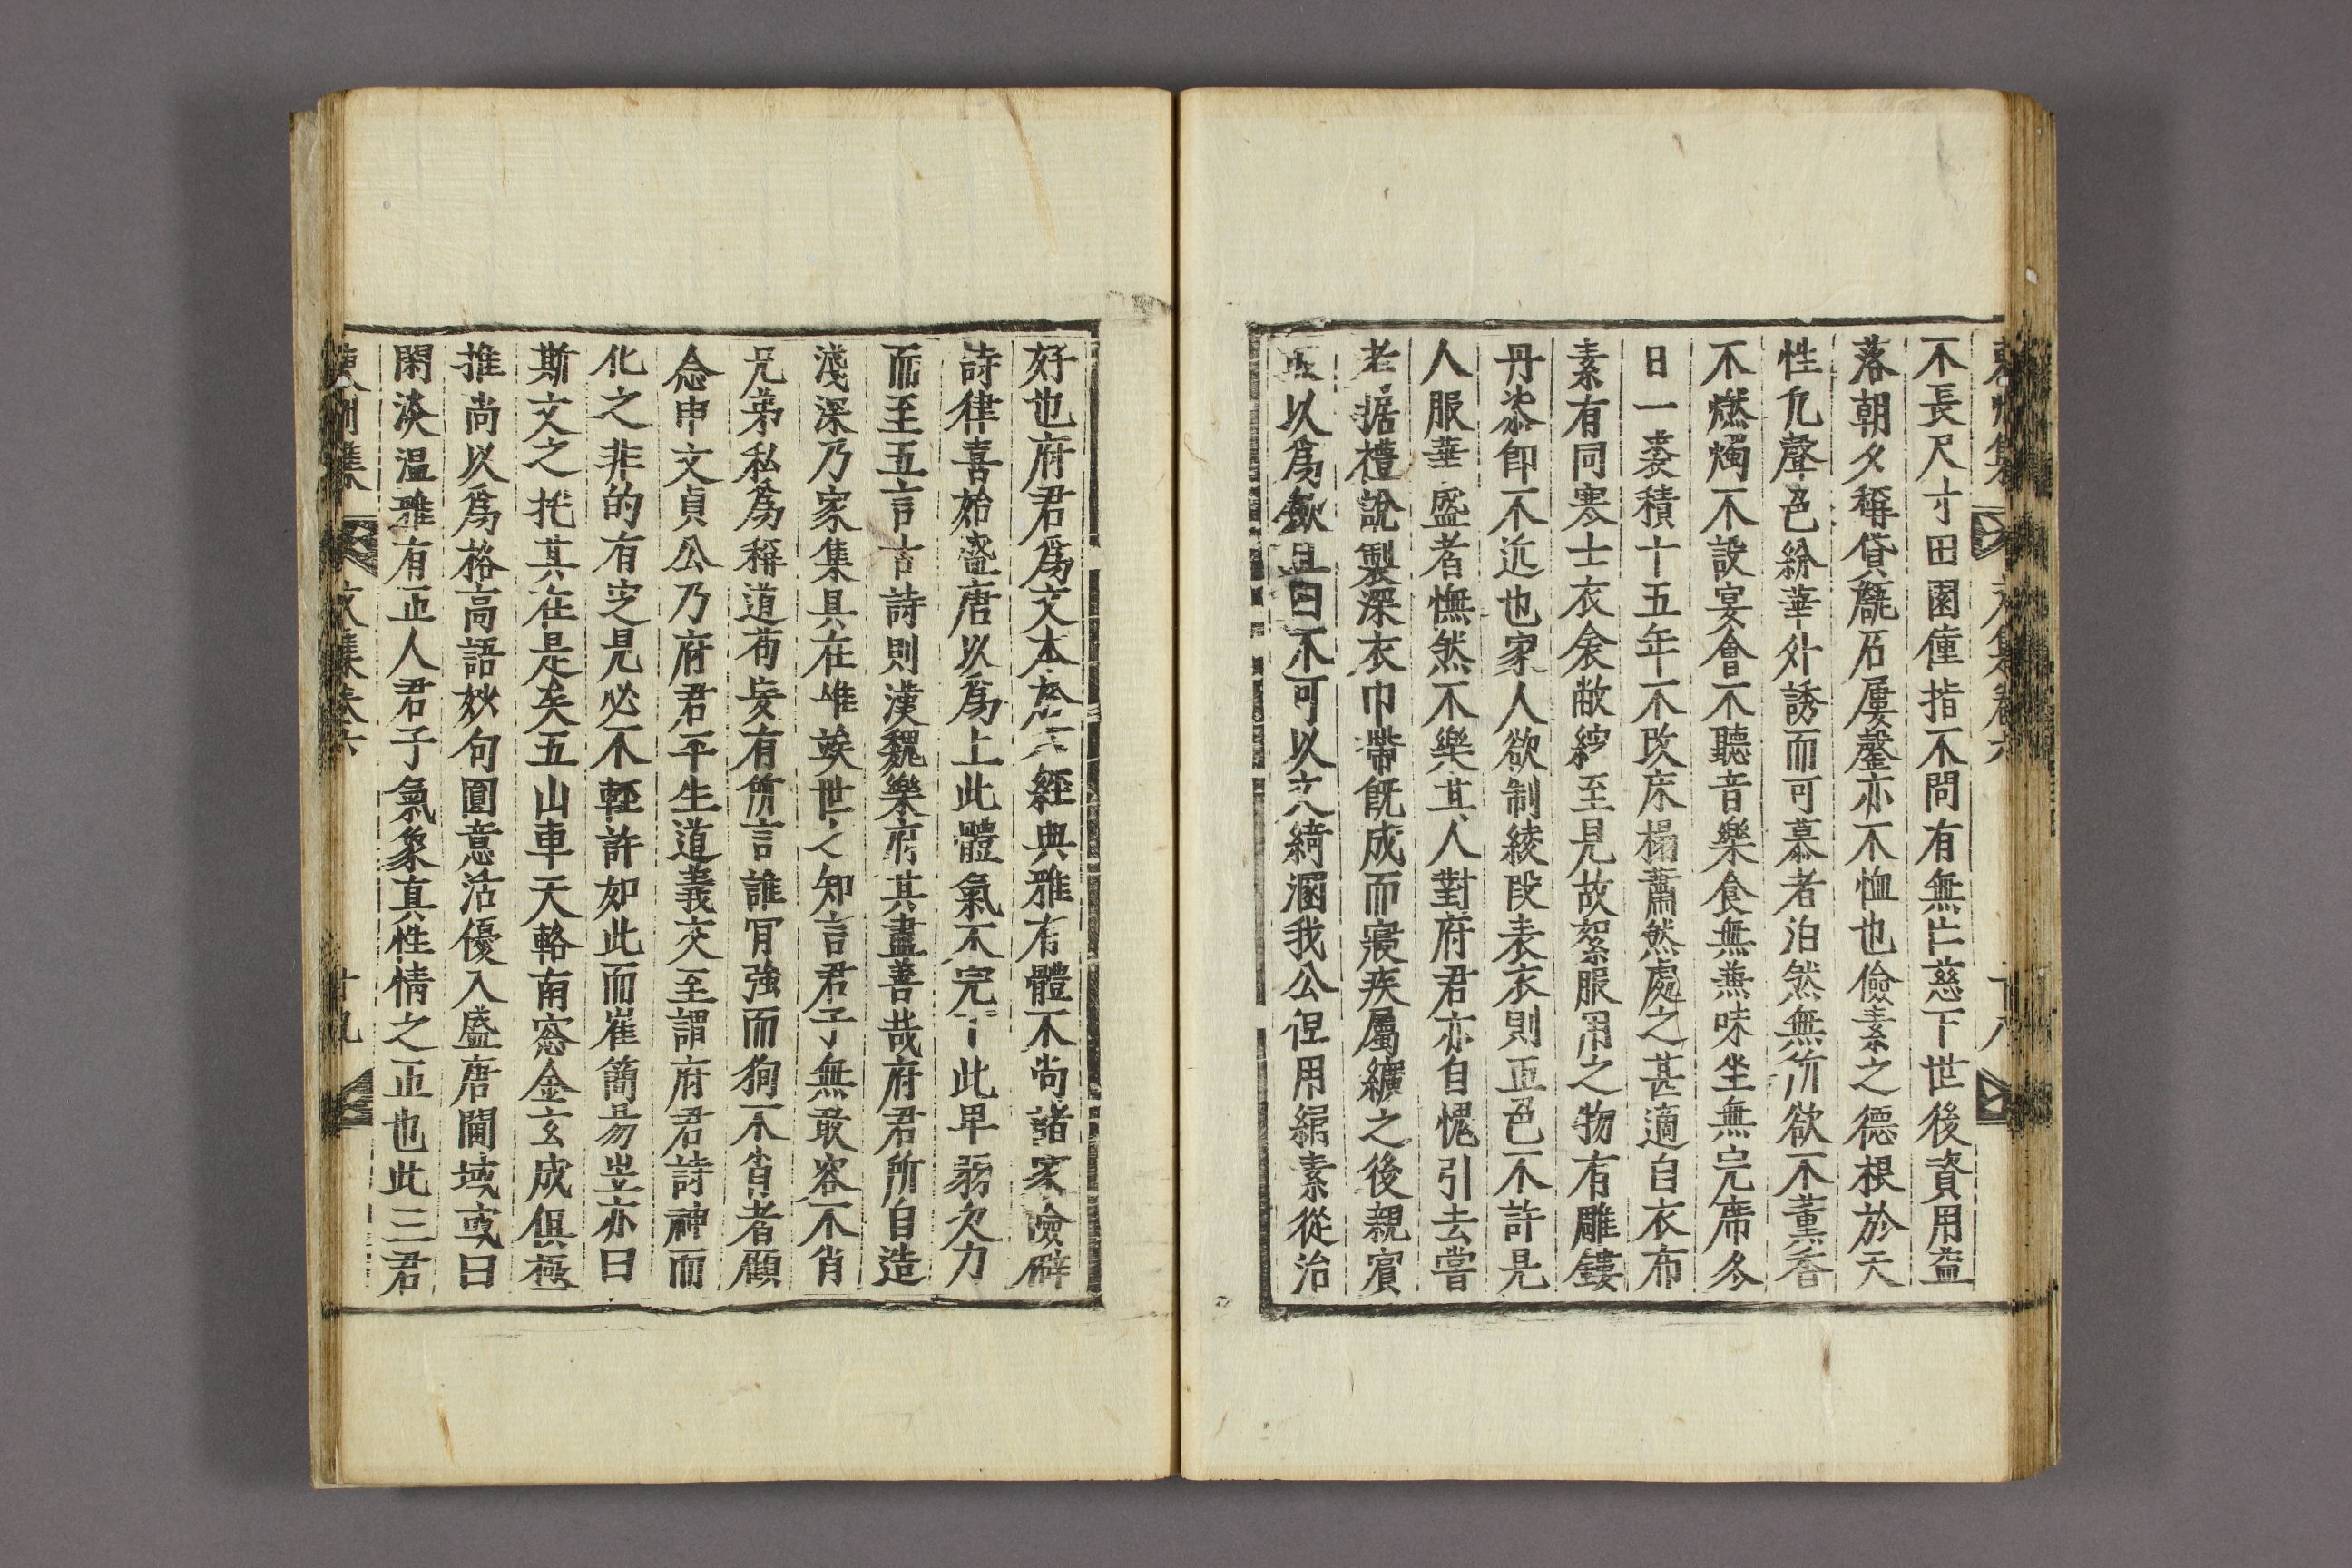 東州集 文集卷六 十八
不長尺寸田園僮指不問有無亡慈下世後資用益
落朝夕稱貸甔石屢罄亦不恤也儉素之德根於天
性凡聲色紛華外誘而可慕者泊然無所欲不薰香
不燃燭不設宴會不聽音樂食無兼味坐無完席冬
日一裘積十五年不改床榻蕭然處之甚適自衣布
素有同寒士衣衾敝綻至見故絮服用之物有雕鏤
丹添卽不近也家人欲制綾段表衣則正色不許見
人服華盛者憮然不樂其人對府君亦自愧引去嘗
考据禮說製深衣巾帶旣成而寢疾屬纊之後親賓
以爲斂且曰不可以文綺溷我公但用絹素從治
好也府君爲文本於六經典雅有體不尙諸家險僻
詩律喜始盛唐以爲上此體氣不完下此卑弱欠力
而至五言古詩則漢魏樂府其盡善哉府君所自造
淺深乃家集具在唯竢世之知言君子無敢容不肖
兄弟私爲稱道苟妄有所言誰肎強而狥不肖者顧
念申文貞公乃府君平生道義交至謂府君詩神而
化之非的有定見必不輕許如此而崔簡易岦亦曰
斯文之托其在是矣五山車天輅南窓金玄成俱極
推尙以爲格高語妙句圓意活優入盛唐閫域或曰
閑淡溫雅有正人君子氣象眞性情之正也此三君
東州集 文集卷六 十九